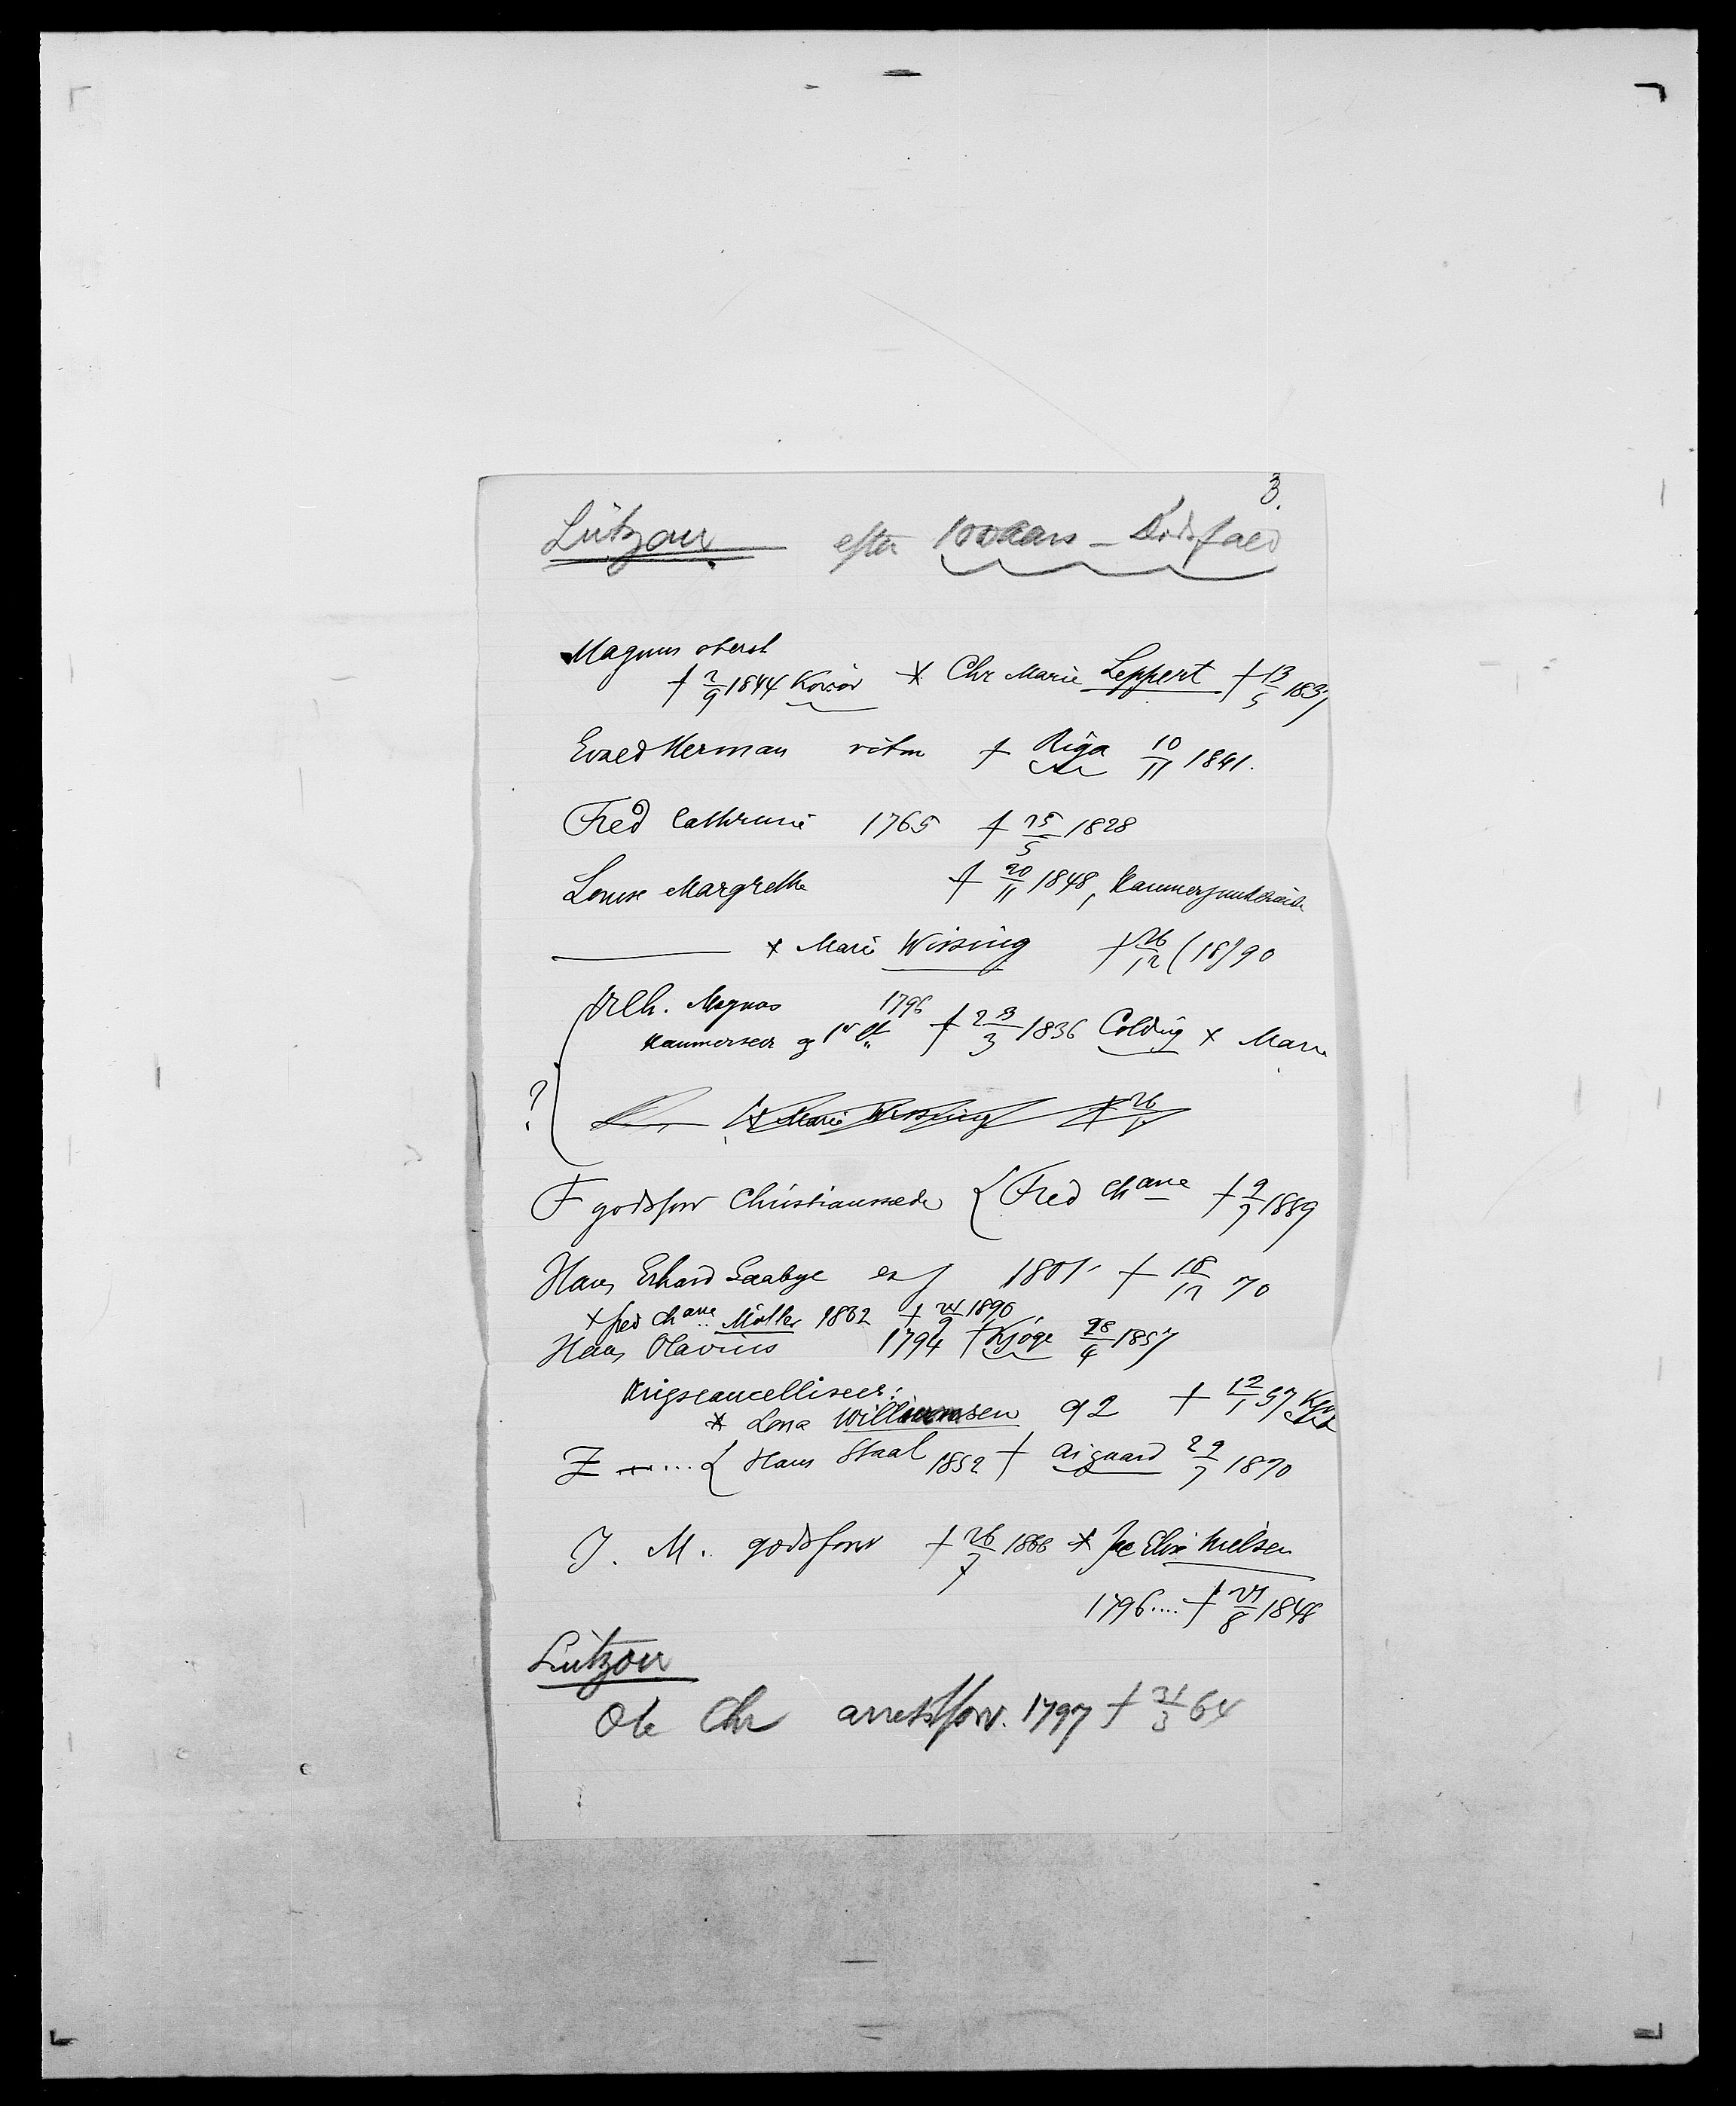 3.
Lützow efter 100 Aars - Dødsfald
Magnus oberst
† 2/9 1844 Korsør * Chr Marie Leppert † 13/5 1837
Evald Herman ritm † Riga 10/11 1841.
Fred Cathrine 1765 † 25/5 1828
Louise Margrethe † 20/11 1848,
* Marie Wissing † 26/12 (18)90
Vilh. Magnus 1796
Kammerser og † 23/3 1836 Colding * Marie
?
* Marie Wissing † 26
F godsforv Christianssæde { Fred Chane † 9/7 1889
Hans Erhard Saabye 1801 † 18/12 70
* fred Chane Møller 1862 † 24/9 1890
Hans Olavius 1794 † Kjøge 28/4 1857
Krigscancellisecr.
* Lona Willumsen 92 † 12/1 57
Z ..... { Hans Staal 1852 † Aisgaard 29/7 1870
J. M. godsforv † 26/7 1866 * Elise Nielsen
1796.... † 21/8 1848
Lützow
Ole Chr arrestforv. 1797 † 31/3 64